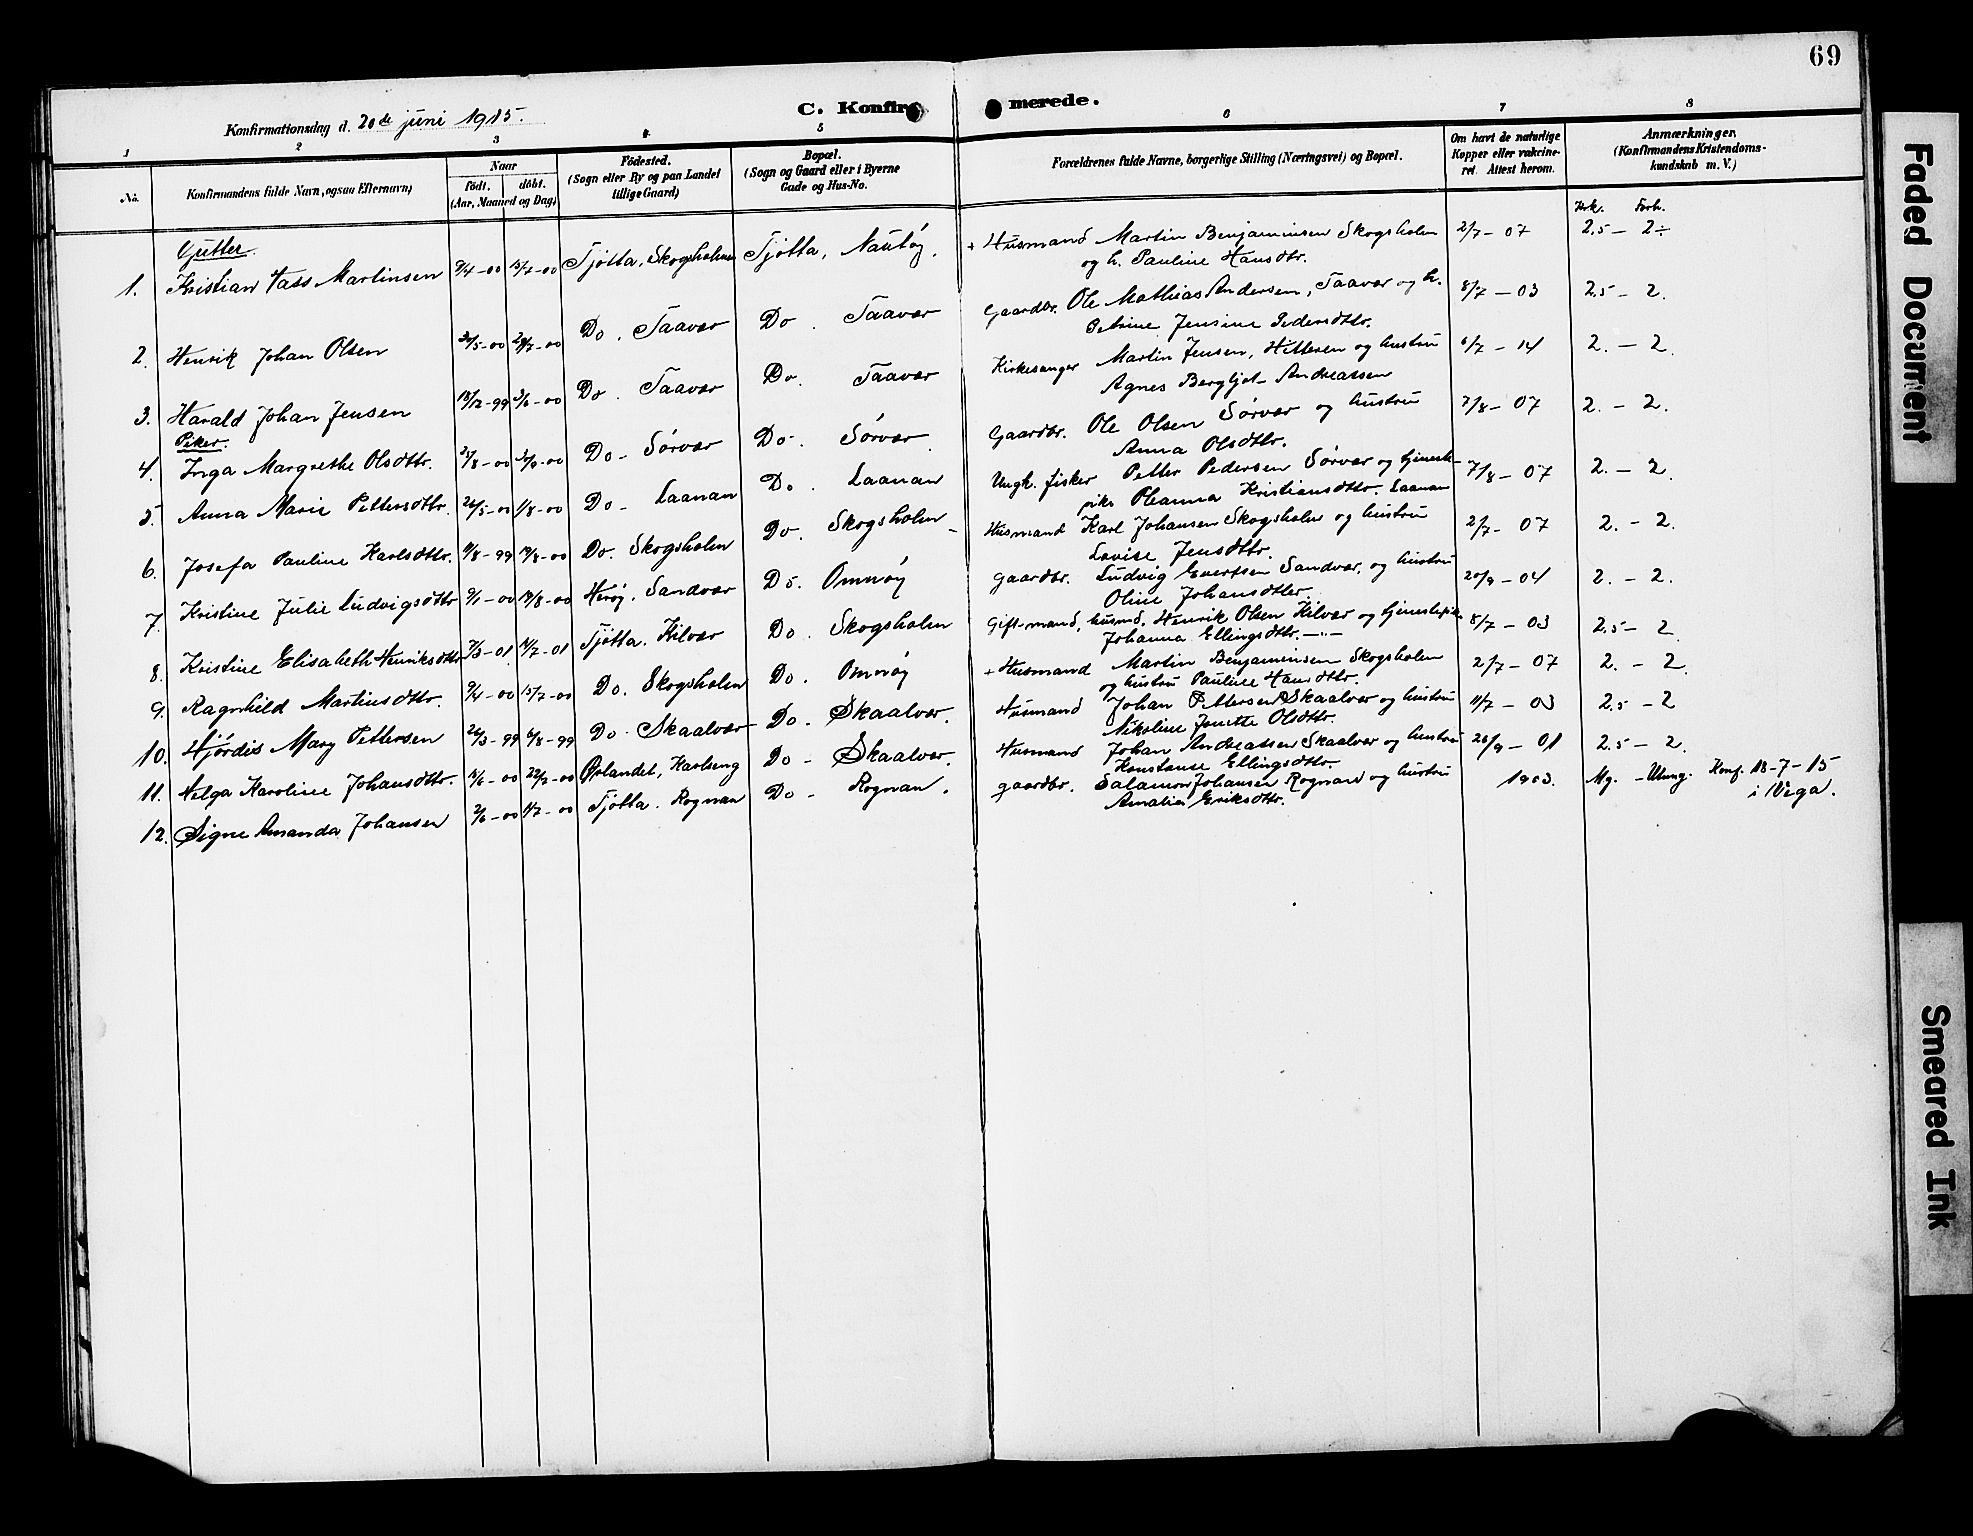 69
C. Konfirmerede.
Konfirmationsdag d. 20de juni 1915.
1 2 3 4 5 6 7 8
No. Konfirmandens fulde Navn, ogsaa Efternavn) Naar født, døbt. (Aar, Maaned og Dag) Fødested. (Sogn eller By og paa Landet tillige Gaard) Bopæl. (Sogn og Gaard eller i Byerne Gade og Hus-No. Forældrenes fulde Navne, borgerlige Stilling (Næringsvei) og Bopæl. Om havt de naturlige Kopper eller vakcineret. Attest herom. Anmærkninger. (Konfirmandens Kristendomskundskab m. V.)
Gutter.
1. Kristian Martinsen 9/4-00 15/7-00 Tjøtta, Skogsholmen Tjøtta, Nautøy. + Husmand Martin Benjaminsen Skogsholm 2/7-07 2.5 - 2÷
og h. Pauline Hansdtr.
2. Henrik Johan Olsen Do. Taavær Do. Taavær Gaardbr. Ole Mathias Andersen, Taavær og h. 8/7-03 2.5 - 2.
Petrine Jensine Pedersdttr.
3. Harald Johan Jensen 13/12-99 3/6-00 Do. Taavær Do. Taavær Kirkesanger Martin Jensen, Hitteren og hustru 6/7-14 2. - 2.
Agnes Bergljot Andreassen
Piker.
4. Inga Margrethe Olsdttr. Do - Sørvær Do. Sørvær Gaardbr. Ole Olsen Sørvær og hustru 7/8-07 2. - 2.
Anna Olsdttr.
5. Anna Marie Pettersdttr. 1/8-00 Do - Laanan Do. Laanan Ungk. fisker Petter Pedersen Sørvær og tjeneste- 7/8-07 2. - 2.
pike Oleanna Kristiansdttr. Laanan
6. Josefa Pauline Karlsdttr. Do. Skogsholm Do. Skogsholm - Husmand Karl Johansen Skogsholm og hustru 2/7-07 2. - 2.
Lovise Jensdttr.
7. Kristine Julie Ludvigsdttr 19/8-00 Herøy. Sandvær Do. Omnøy Gaardbr. Ludvig Evertsen Sandvær, og hustru 20/9-04 2. - 2.
Oline Johansdtter
8. Kristine Elisabeth Henriksdttr 7/3-01 Tjøtta. Kilvær Do. Skogsholm Gift-mand, husmd, Henrik Olsen Kilvær og tjenestepike 8/7-03 2.5 - 2.
Johanna Ellingsdttr. -"-
9. Ragnhild Martinsdttr. 9/4-00 15/7-00 Do. Skogsholm Do. Omnøy + Husmand Martin Benjaminsen Skogsholm 2/7-07 2. - 2.
og hustru Pauline Hansdttr.
10. Hjørdis Mary Pettersen 6/8-99 Do. Skaalvær Do. Skaalvær. Husmand Johan Pettersen Skaalvær og hustru 11/7-03 2.5 - 2
Nikoline Jonette Olsdttr.
11. Helga Karoline Johansdttr. 22/7-00 Ørlandet, Karlseng Do - Skaalvær. Husmand Johan Andreassen Skaalvær og hustru 28/9-01 2.5 - 2.
Konstanse Ellingsdttr.
12. Signe Amanda Johansen 2/6-00 1/7-00 Tjøtta. Rognan Do - Rognan. gaardbr. Salamon Johansen Rognan og hustru 1903. Mg. - Utmg. Konf. 18-7-15
Amalie Eriksdttr. i Vega.
Faded Document
Smeared Ink